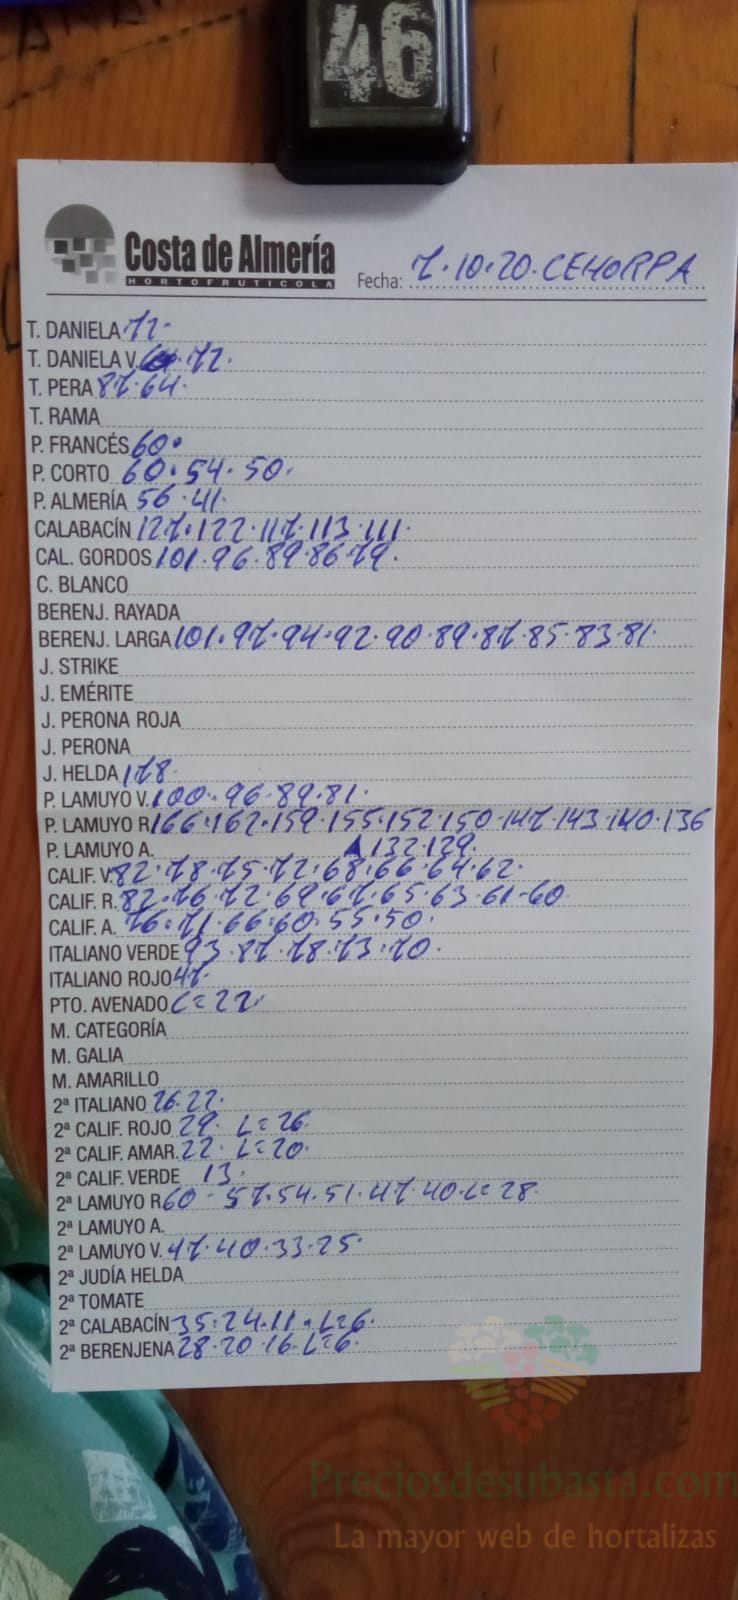 46
Costa de Almería
HORTOFRUTICOLA
Fecha: 7.10.20.CEHORPA
T. DANIELA 72.
T. DANIELA V. 72.
T. PERA 87.64.
T. RAMA
P. FRANCÉS 60.
P. CORTO 60.54.50.
P. ALMERÍA 56.41.
CALABACÍN 127.122.117.113.111.
CAL. GORDOS 101.96.89.86.79.
C. BLANCO
BERENJ. RAYADA
BERENJ. LARGA 101.97.94.92.90.89.87.85.83.81.
J. STRIKE
J. EMÉRITE
J. PERONA ROJA
J. PERONA
J. HELDA 178.
P. LAMUYO V. 100.96.89.81.
P. LAMUYO R 166.162.159.155.152.150.147.143.140.136
P. LAMUYO A. 132.129.
CALIF. V. 82.78.75.72.68.66.64.62.
CALIF. R. 82.76.72.69.67.65.63.61-60
CALIF. A. 76.71.66.60.55.50.
ITALIANO VERDE 93.87.78.73.70.
ITALIANO ROJO 47.
PTO. AVENADO L=22.
M. CATEGORÍA
M. GALIA
M. AMARILLO
2ª ITALIANO 26.22.
2ª CALIF. ROJO 29. L=26.
2ª CALIF. AMAR. 22. L=20.
2ª CALIF. VERDE 13.
2ª LAMUYO R. 60-57.54.51.47.40.L=28.
2ª LAMUYO A.
2ª LAMUYO V. 47.40.33.25.
2ª JUDÍA HELDA
2ª TOMATE
2ª CALABACÍN 35.24.11.L=6.
2ª BERENJENA 28.20.16.L=6.
Preciosdesubasta.com
La mayor web de hortalizas